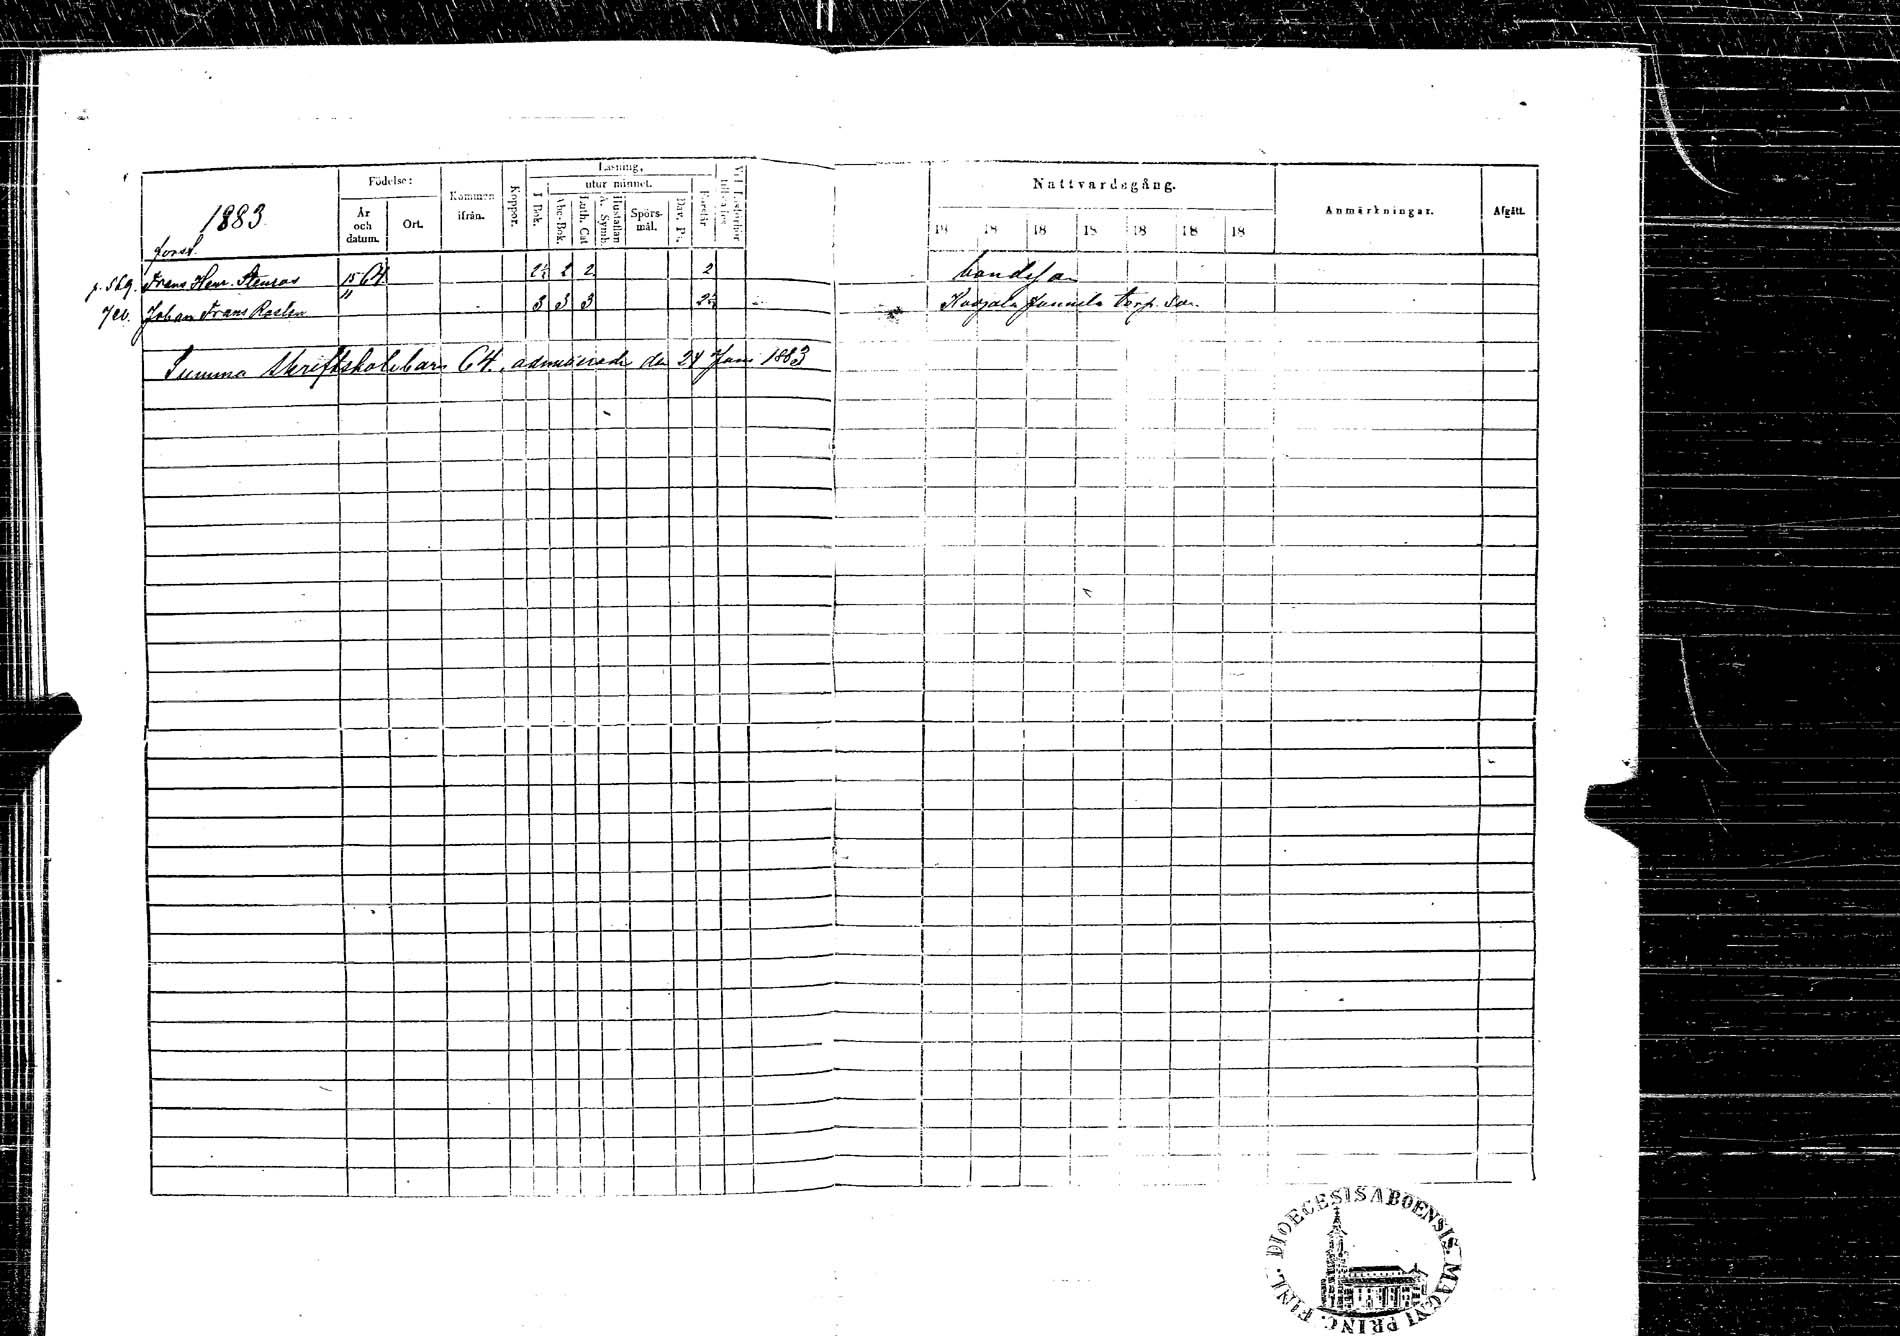 1883
Födelse:
År och datum.
Ort.
Kommen ifrån.
Koppor.
Läsning,
utur minnet.
I Bok.
Abc-Bok.
Luth. Cat
Hustaflan A. Symb.
Spörs-mål.
Dav. Ps.
Förstår
Nattvardsgång.
18 18 18 18 18 18 18
Anmärkningar.
Afgått.
p. 569. Frans Henr. Stenros 15 64. 2½ 2 2 2 bondeson
Johan Frans " 3 3 3 2½ torp. son
Summa Skriftskolebarn 64, admitterade den 24 Juni 1883
FINL. DIOECESIS ABOENSIS. MAGNI PRINC.